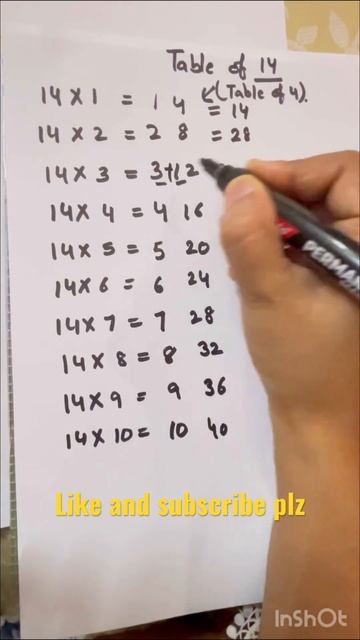 Table of 14
(Table of 4).
14 X 1 = 1 4 = 14
14 X 2 = 2 8 = 28
14 X 3 = 3+12
14 X 4 = 4 16
14 X 5 = 5 20
14 X 6 = 6 24
14 X 7 = 7 28
14 X 8 = 8 32
14 X 9 = 9 36
14 X 10 = 10 40
Like and subscribe plz
InShOt